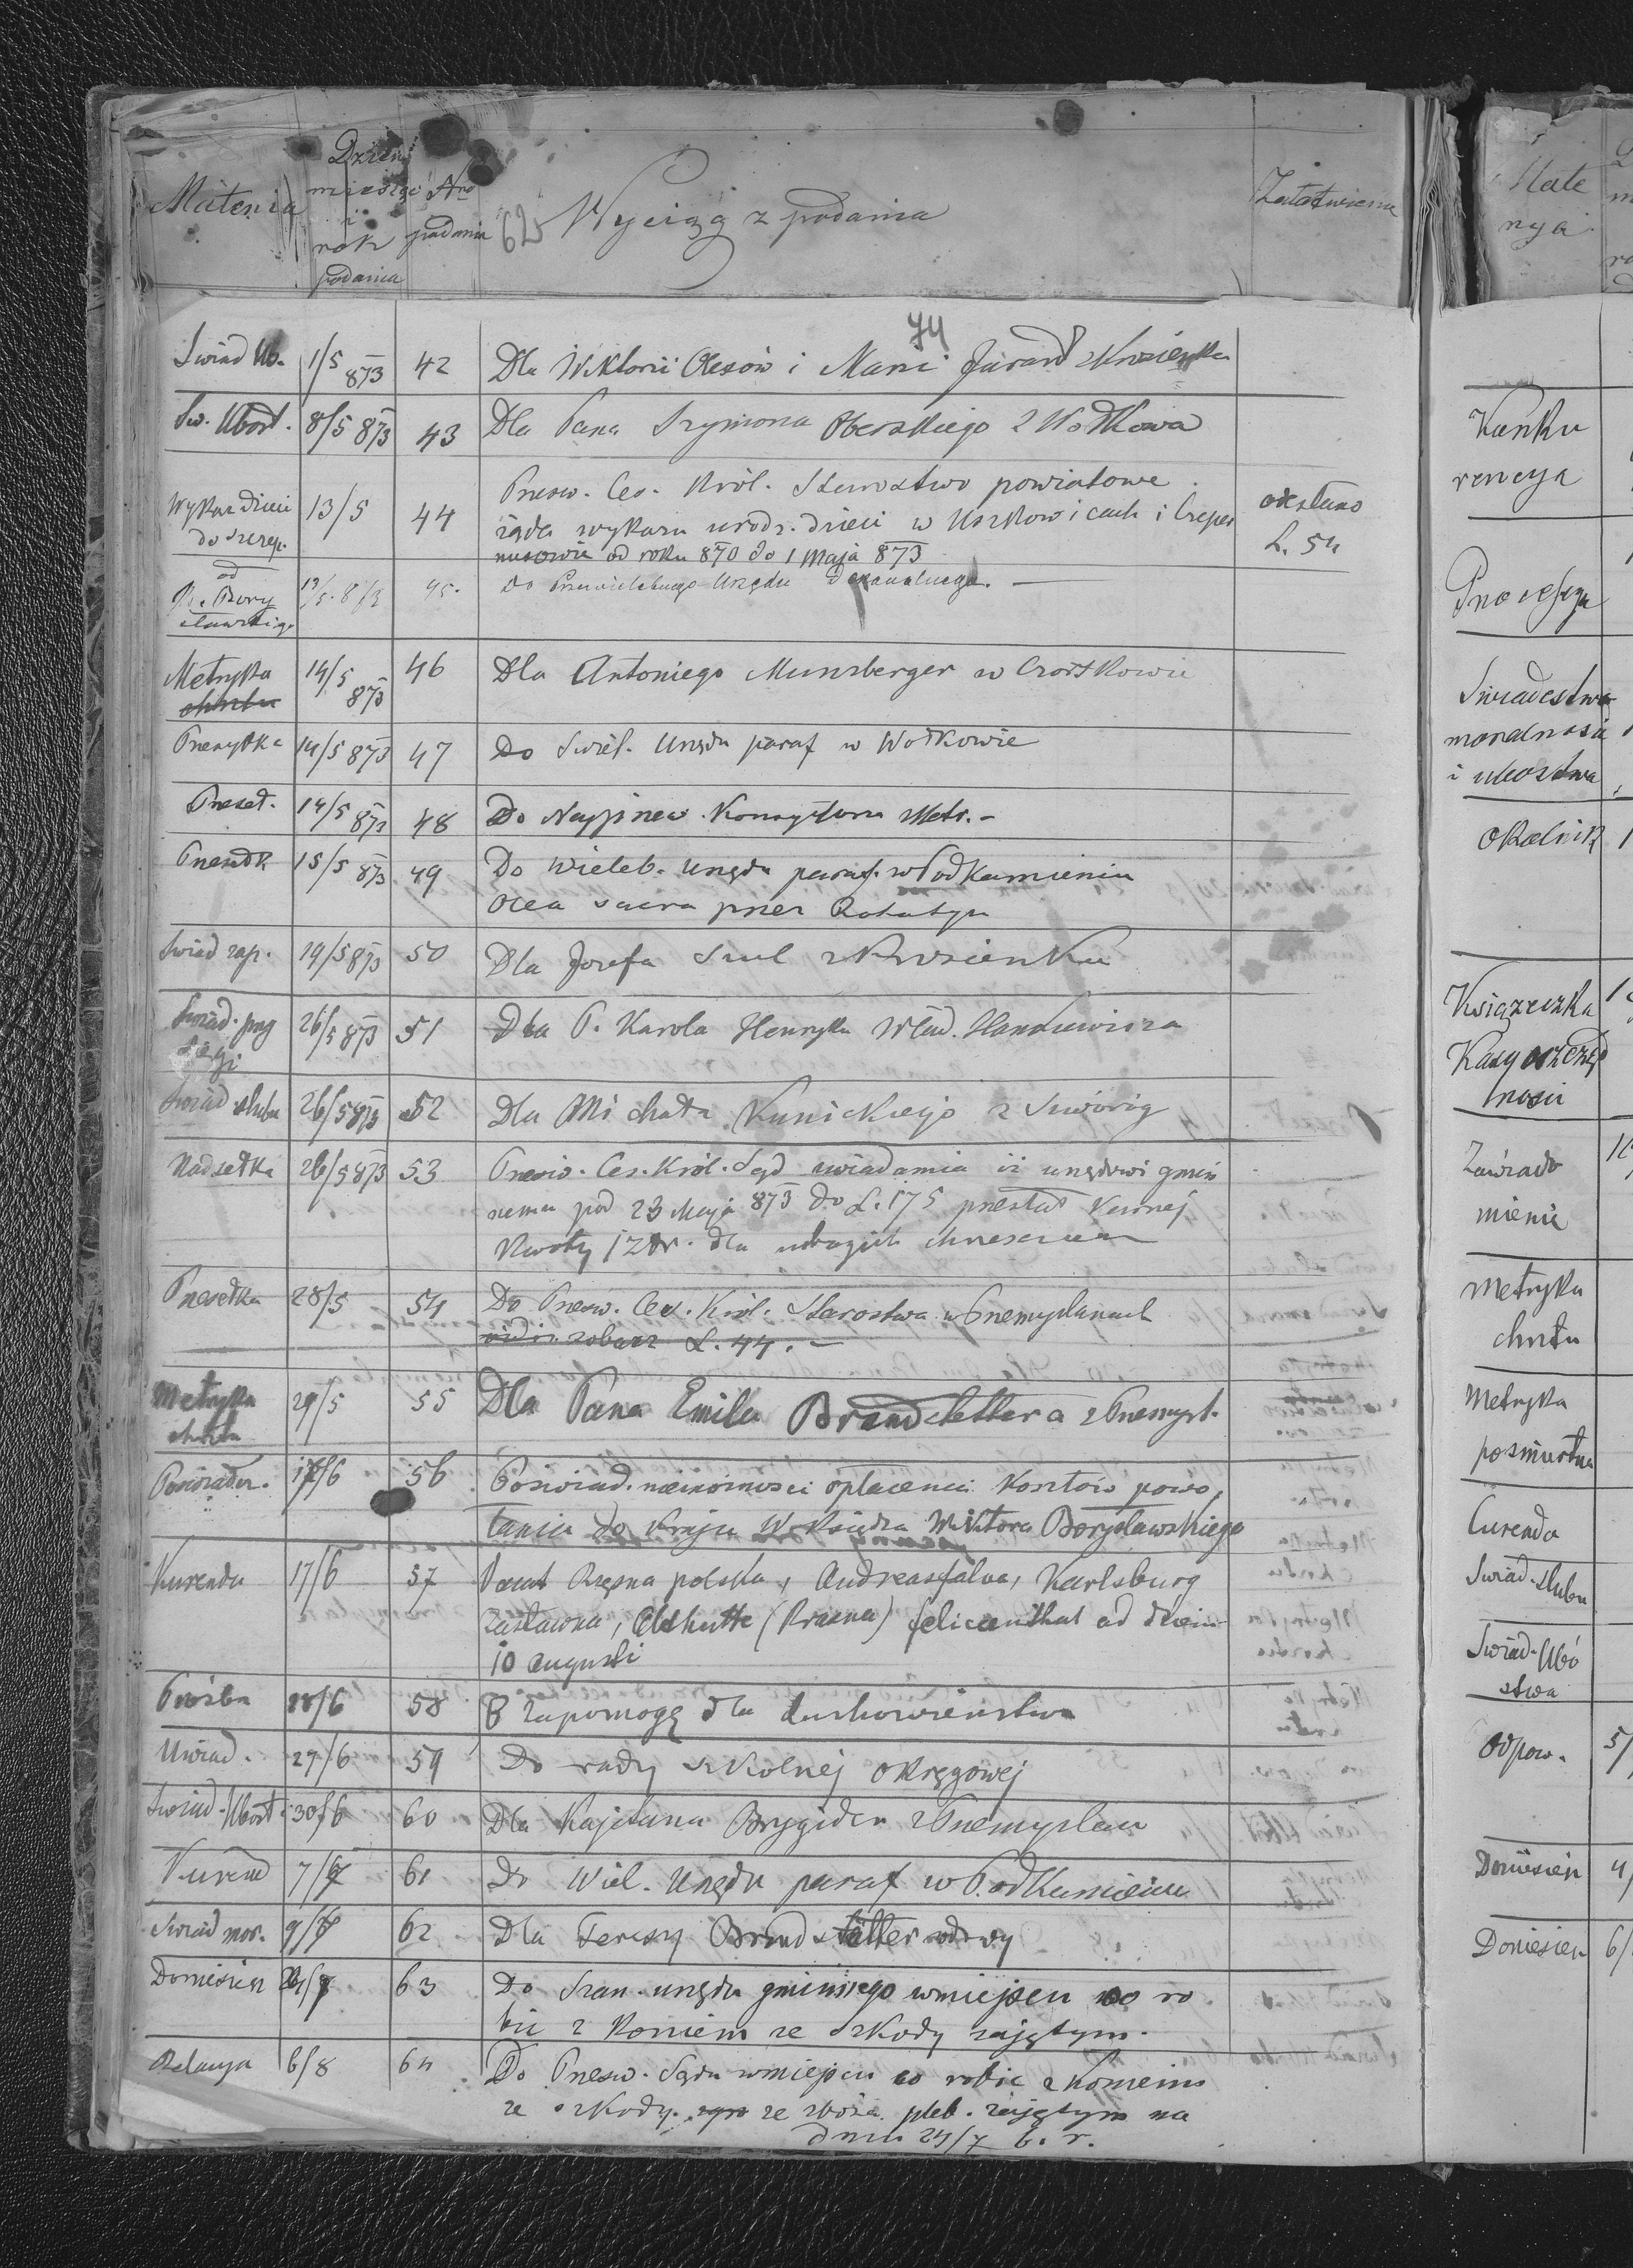 Materia
Dzień
miesiąc
i
rok
podania
Nro
podania
62
Wyciąg z podania
Załatwienie
74
Świad Ub. 1/5 873 42 Dla Wiktorii Olesów i Marii
Św. Ubost. 8/5 873 43 Dla Pana Szymona Oberskiego z Wołkowa
Wykaz dzieci 13/5 44 Przesw. Ces. Król. Starostwo powiatowe
do szczep. żąda wykazu urodz. dzieci w Uszkowicach i Czeper
nosowie od roku 870 do 1 maja 873
odesłano
L. 54
od
X. Bory
sławskiego 13/5. 873 45. Do Przewielebnego Urzędu Dekanalnego. —
Metryka 14/5 873 46 Dla Antoniego Munzberger w Czortkowie
chrztu
Przesyłka 14/5 873 47 Do Wiel. Urzędu paraf w Wołkowie
Przeseł. 14/5 873 48 Do Najprzew. Konsystorza Metr. -
Przesełk 15/5 873 49 Do Wieleb. Urzędu paraf. w Podkamieniu
Olea sacra przez Rohatyn
Świad zap. 19/5 873 50 Dla Józefa
Świad. 26/5 873 51 Dla P. Karola Henryka Wład. Hankiewicza
Świad ślubu 26/5 873 52 Dla Michała Kunickiego z
Nadsełka 26/5 873 53 Przesw. Ces. Król. Sąd uwiadamia iż urzędowi gmin
nemu pod 23 Maja 873 do L. 175 przesłał karnej
kwoty 1 złr. dla ubogich chrześcian
Przesełka 28/5 54 Do Przesw. Ces. Król. Starostwa w Przemyślanach
zobacz L. 44. —
Metryka 29/5 55 Dla Pana Emila Brandstettera z Przemyśl.
chrztu
Poświadcz. 17/6 56 Poświad. niemożności opłacenia kosztów powo,
łania do kraju W. Księdza Wiktora Borysławskiego
Kurenda 17/6 57 Vacat Rzęsna polska, Andreasfalva, Karlsburg
Zastawna, Althutte (Krasna) felicienthal ad
10 augusti
Prośba 18/6 58 O zapomogę dla duchowieństwa
Uwiad. 27/6 59 Do rady szkolnej okręgowej
Świad. Ubost 30/6 60 Dla Kajetana Brygider z Przemyślan
Kurend 7/7 61 Do Wiel. Urzędu paraf w Podkamieniu
Świad mor. 9/7 62 Dla Teresy Brandstätter wdowy
Doniesien 63 Do Szan. urzędu gminnego w miejscu co ro
bić z koniem ze szkody zajętym.
Relacya 6/8 64 Do Przesw. Sądu w miejscu co robić z koniem
ze szkody ze zboża pleb. zajętym na
dniu 24/7 b. r.
Mate
rya
Konku
rencya
Procesya
Świadectwo
moralności
i ubóstwa
Okólnik
Książeczka
Kasy oszczęd
ności
Zawiado
mienie
Metryka
chrztu
Metryka
pośmiertna
Curenda
Świad. ślubu
Świad. Ubó
stwa
Odpow. 5/
Doniesien 4/
Doniesien 6/